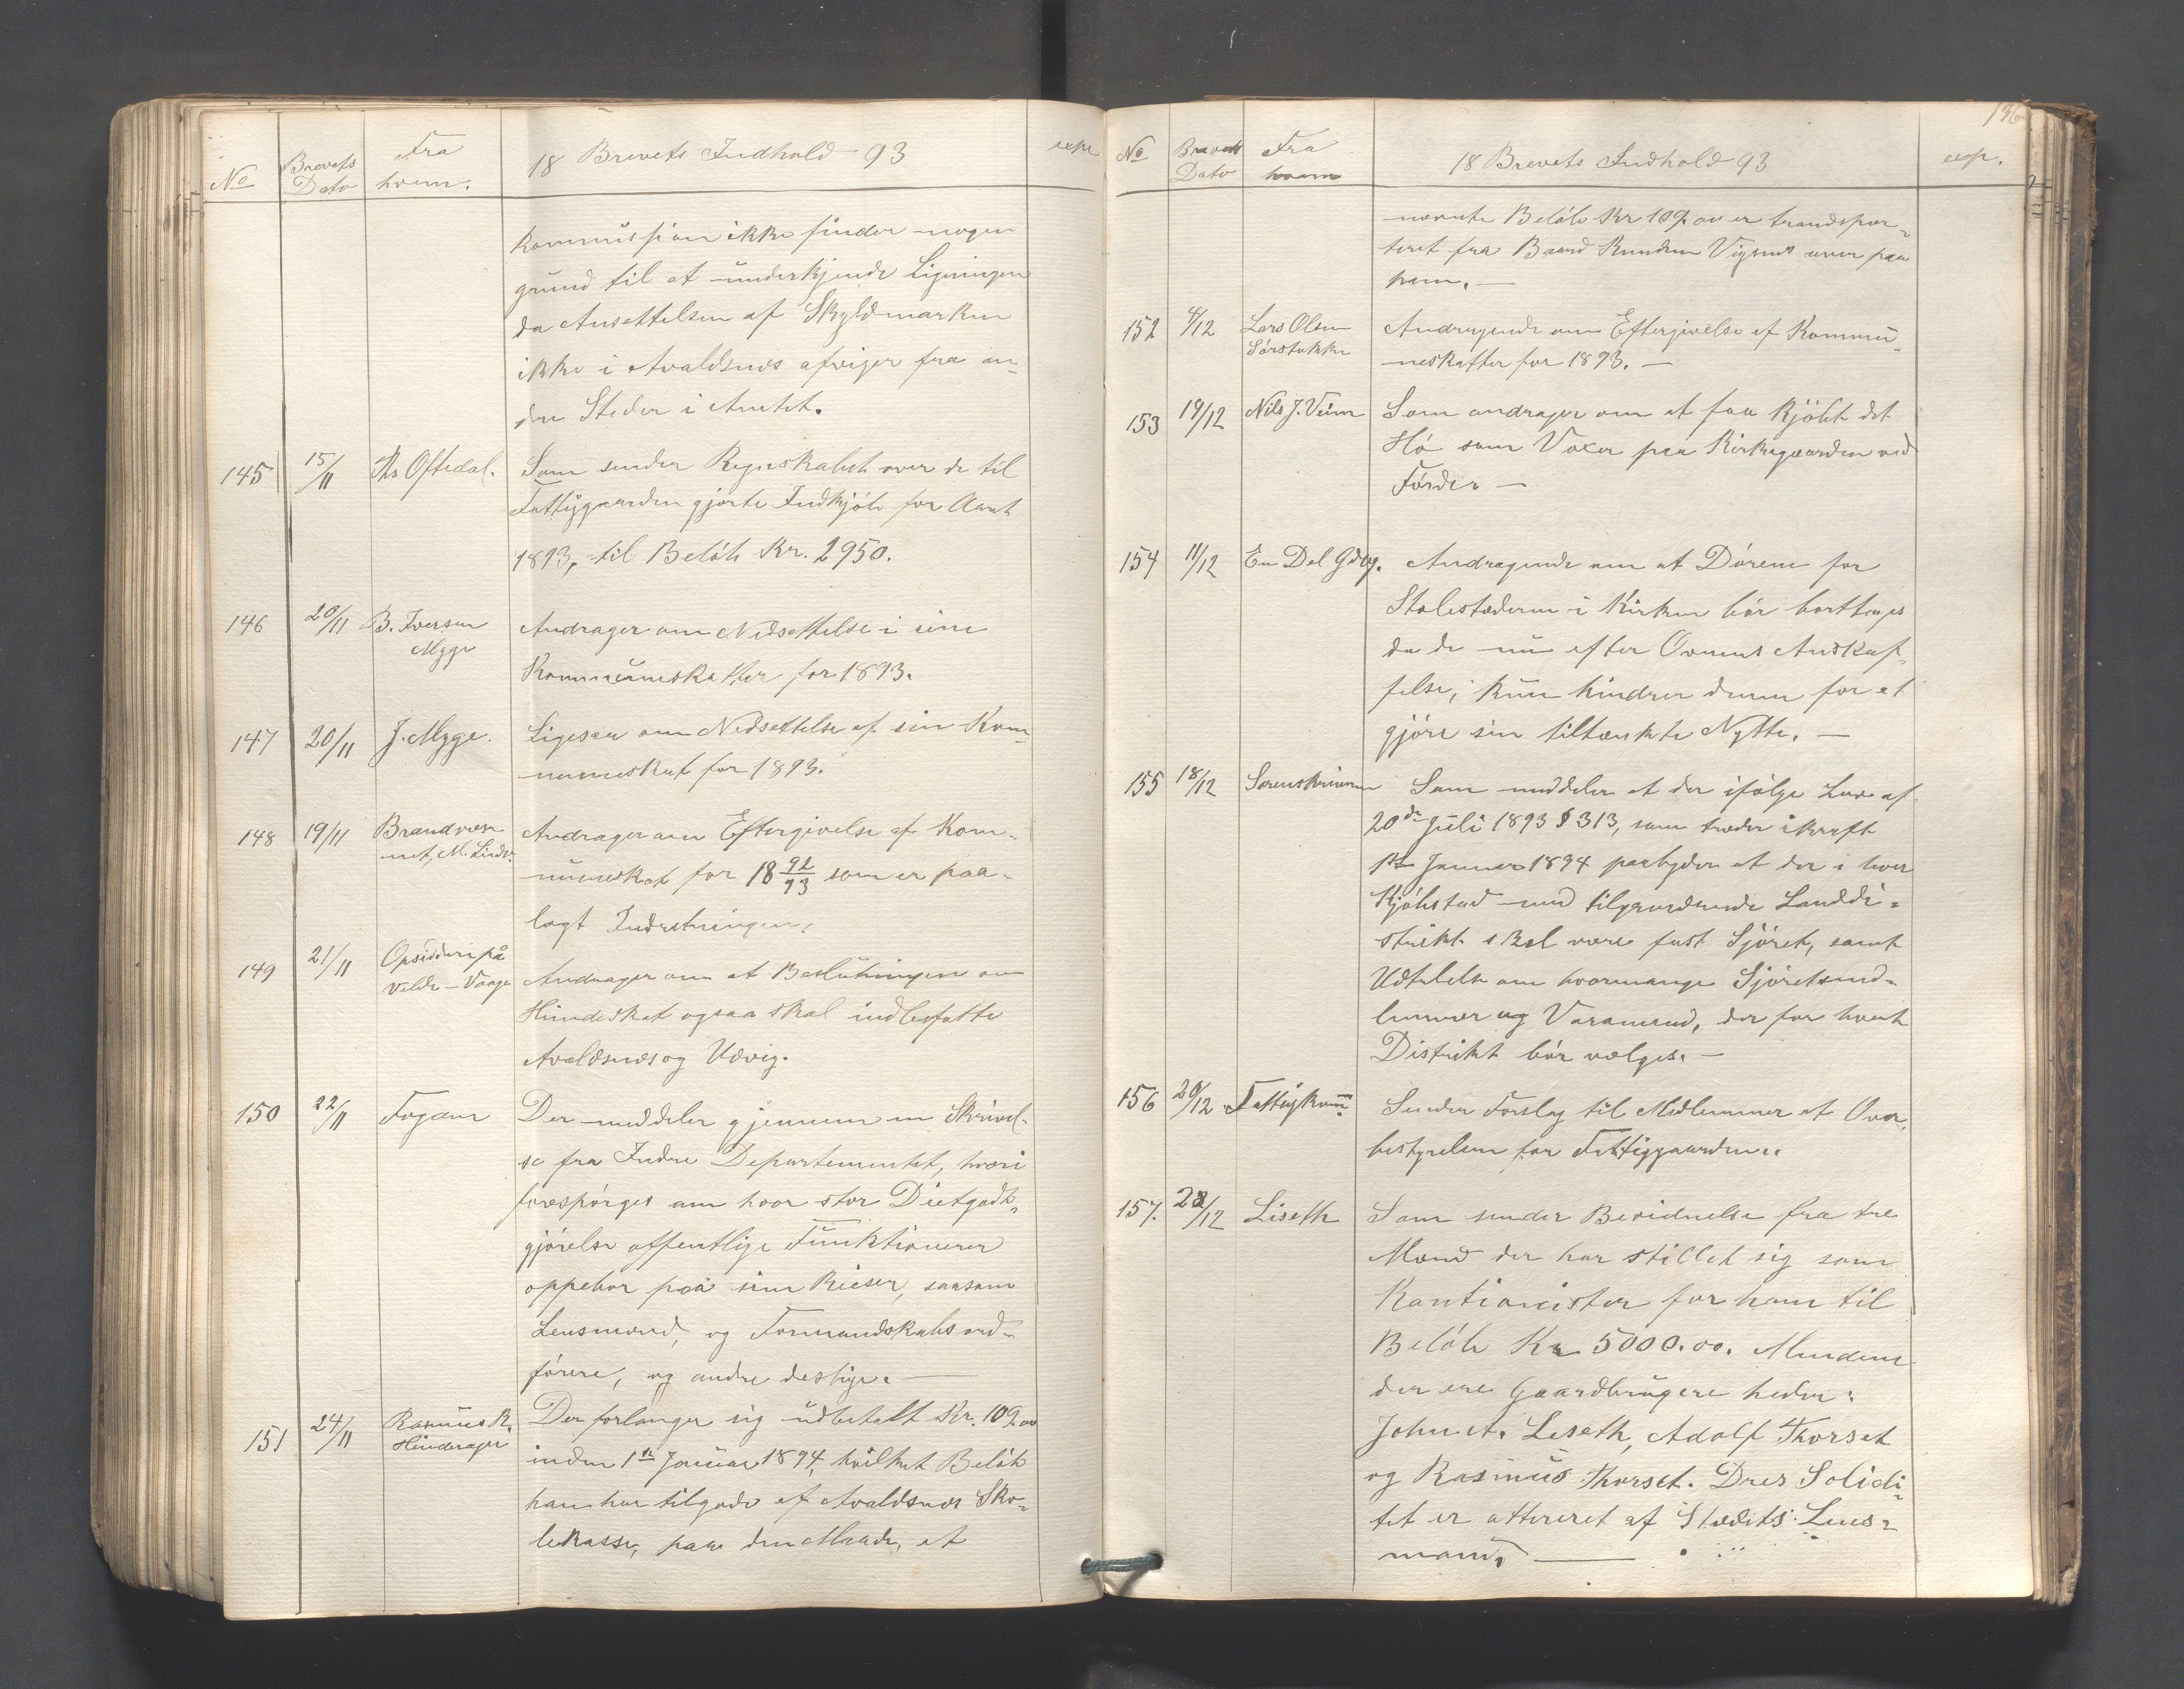 No Brevets Dato Fra hvem. 18 Brevets Indhold 93 exp
Kommissionen ikke finder nogen
grund til at underkjende Ligningen
da Ansettelsen af Skyldmarken
ikke i Avaldsnes afviger fra an-
dre Steder i Amtet.
145 15/11 Oftedal. Som sender Regnskabet over de til
Fattiggaarden gjorte Indkjöb for Aaret
1893, til Belöb Kr. 2950.
146 20/11 B. Iversen Myge Andrager om Nedsettelse i sine
Kommuneskatter for 1893.
147 20/11 J. Myge. Ligesaa om Nedsettelse af sin Kom-
muneskat for 1893.
148 19/11 Brandvæse-
net, M. Andrager om Eftergivelse af Kom-
muneskat for 18 92/93 som er paa-
lagt Indretningen,
149 21/11 Opsiddere på
Velde-Vaage Andrager om at Beslutningen om
Hundeskat ogsaa skal indbefatte
Avaldsnes og Utvig.
150 22/11 Fogden Der meddeler gjennem en Skrivel-
se fra Indre Departementet, hvori
forespörges om hvor stor Dietgodt-
gjörelse offentlige Funktionerer
oppebær paa sine Reiser, saasom
Lensmænd, og Formandskabsord-
förere, og andre deslige. —
151 24/11 Rasmus K.
Hinderager Der forlanger sig udbetalt Kr. 109.00
inden 1ste Januar 1894, hvilket Belöb
han har tilgode af Avaldsnes Sko-
lekasse, paa den Maade, at
136
No Brevets Dato Fra hvem 18 Brevets Indhold 93 exp.
nevnte Belöb Kr 109.00 er trandspor-
teret fra Baard Knudsen Vigsnes over paa
ham. —
152 4/12 Lars Olsen
Sörstokke Andragende om Eftergivelse af Kommu-
neskatter for 1893. —
153 19/12 Nils J. Veim Som andrager om at faa kjöbt det
Hö som Voxer paa Kirkegaarden ved
Förde. —
154 11/12 En Del Gdbg. Andragende om at Dörene for
Stolestaderne i Kirken bör borttages
da de nu efter Ovnens Anskaf-
felse, kun hindrer denne for at
gjöre sin tiltænkte Nytte. —
155 18/12 Sorenskriveren Som meddeler at der ifölge Lov af
20de Juli 1893 § 313, som træder ikraft
1ste Januar 1894 paabyder at der i hver
Kjöbstad med tilgrændsende Landdi-
strikt skal være fast Sjöret, samt
Udtalelse om hvormange Sjöretsmed-
lemmer og Varamend, der for hvert
Distrikt bör vælges. —
156 20/12 Fattigkom. Sender Forslag til Medlemmer af Over-
bestyrelsen for Fattiggaarden..
157. 28/12 Liseth Som sender Bevidnelse fra tre
Mænd der har stillet sig som
Kautionister for ham til
Belöb Kr 5000.00. Mændene
der ere Gaardbrugere heder:
John A. Liseth, Adolf Thorset
og Rasmus Thorset. Dres Solidi-
tet er atteret af Stedets Lens-
mand. —